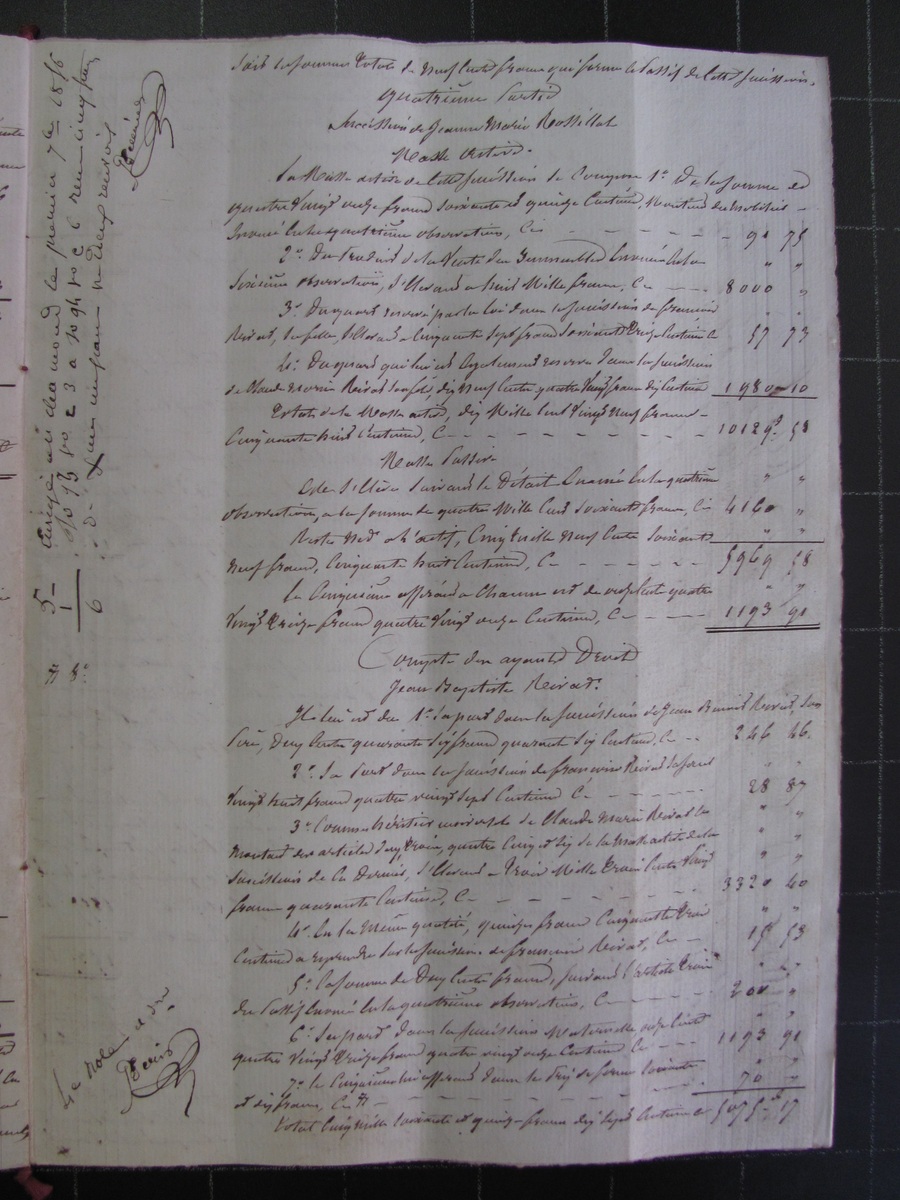 Soit la somme totale de neuf cents francs qui forme le passif de cette succession.
quatrième Partie
Succession de Jeanne Marie Rossillat
Masse active.
La Masse active de cette succession se compose 1° De la somme de
quatre vingt onze francs soixante et quinze centimes, montant du mobilier
énoncé en la quatrième observation, Ci 91 75
2° Du produit de la vente des immeubles énoncé en la
sixième observation, s'élevant à huit mille francs, C 8000 "
3° Du quart réservé par la loi dans la succession de françoise
Revirat, sa fille s'élevant à cinquante sept francs soixante treize centimes C 57 73
4° Du quart qui lui est également réservé dans la succession
de Claude Marie son fils, dix neuf cents quatre vingt francs dix centimes 1980 10
Total de la Masse active, dix mille cent vingt neuf francs
cinquante huit centimes, C 10129 58
Masse Passive
Elle s'élève suivant le Détail énoncé en la quatrième
observation, à la somme de quatre mille cent soixante francs, Ci 4160 "
Reste net à l'actif, cinq mille neuf cents soixante
neuf francs, cinquante huit centimes, C 5969 58
Le cinquième afférent à chacun est de onze cent quatre
vingt treize francs quatre vingt onze centimes, C 1193 91
Compte des ayants Droit
Jean Baptiste
Il lui est du 1° sa part dans la succession de Jean son
Père, deux cents quarante six francs quarante six centimes, C 246 46
2° Sa part dans la succession de françoise sa sœur
vingt huit francs quatre vingt sept centimes C 28 87
3° Comme héritier de Claude Marie le
montant des articles deux, trois, quatre cinq et six de la masse active de la
succession de ce Dernier, s'élevant à trois mille trois cents vingt
francs quarante centimes, C 3320 40
4° En la même qualité, quinze francs cinquante trois
centimes à reprendre sur la succession de françoise, C 15 53
5° la somme de deux cents francs, suivant l'article trois
du passif énoncé en la quatrième observation, C 200 "
6° Sa part dans la succession Maternelle onze cent
quatre vingt treize francs quatre vingt onze centimes C 1193 91
7° le cinquième lui afférent dans le prix de ferme soixante
et dix francs, C 70 "
Total cinq mille soixante et quinze francs dix sept centimes C 5075 17